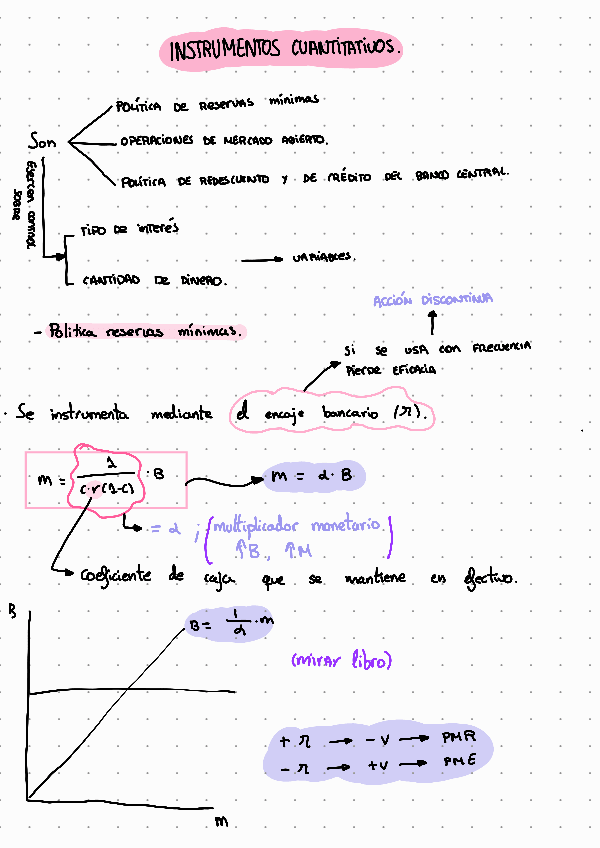 INSTRUMENTOS CUANTITATIVOS.
POLÍTICA DE RESERVAS mínimas
Son
OPERACIONES DE MERCADO ABIERTO.
POLÍTICA DE REDESCUENTO Y DE CRÉDITO DEL BANCO CENTRAL.
Ejercen control
sobre
TIPO DE interés
VARIABLES.
CANTIDAD DE DINERO.
ACCIÓN DISCONTINUA
- Politica reservas mínimas.
Si se USA con FRECUENCIA
Pierde EFICACIA
· Se instrumenta mediante el encaje bancario (r).
m = 1 / c·r(1-c) · B
m = α · B
= α ; (multiplicador monetario
↑B , ↑M)
coeficiente de caja que se mantiene en efectivo.
B
B = 1/α · m
(mirar libro)
+ r → - v → PMR
- r → + v → PME
m